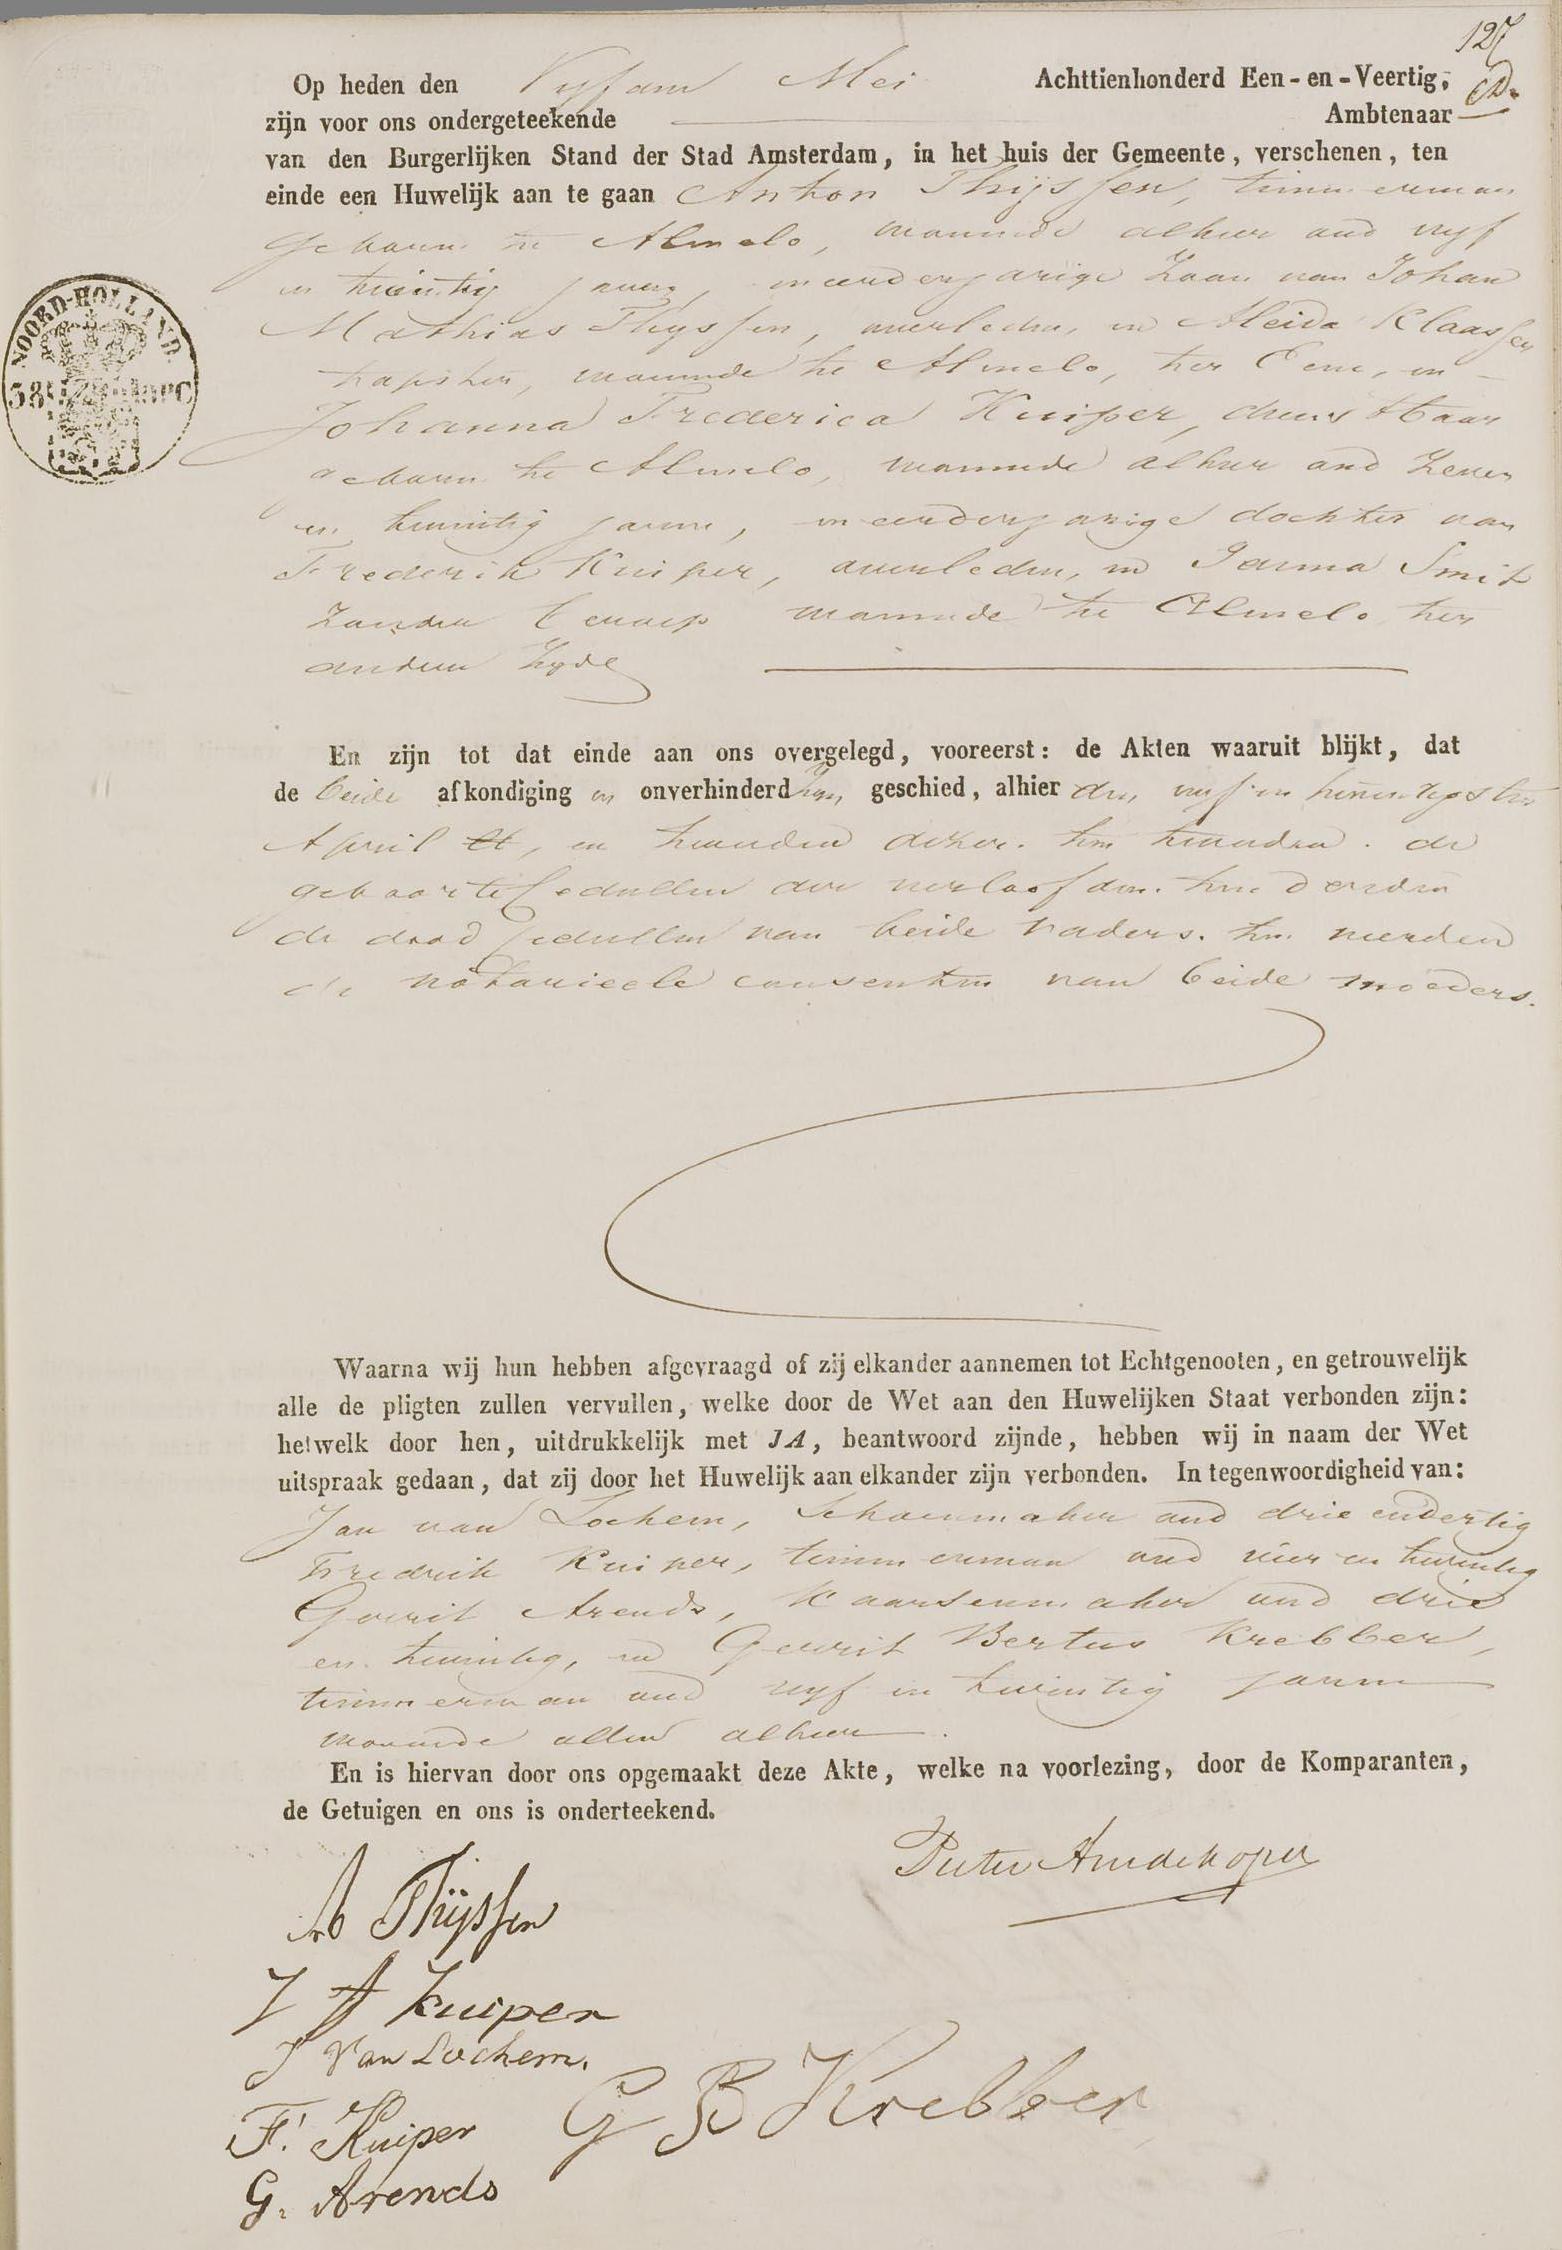 127
Op heden den Vyfden Mei Achttienhonderd Een-en-Veertig,
zijn voor ons ondergeteekende Ambtenaar
van den Burgerlijken Stand der Stad Amsterdam, in het huis der Gemeente, verschenen, ten
einde een Huwelijk aan te gaan Anton Thijssen, timmerman
geboren te Almelo, wonende alhier oud vyf
en twintig jaren, meerderjarige Zoon van Johan
Mathias Thyssen, overleden, en Aleida Klaassen
tapster, wonende te Almelo, ter Eene, en
Johanna Frederica Kuiper, dienstbaar
geboren te Almelo, wonende alhier oud Zeven
en twintig jaren, meerderjarige dochter van
Frederik Kuiper, overleden, en Janna Smit
Zonder beroep wonende te Almelo ter
andere Zyde
NOORD-HOLLAND.
En zijn tot dat einde aan ons overgelegd, vooreerst: de Akten waaruit blijkt, dat
de beide afkondigingen onverhinderd zyn geschied, alhier den vyf en twintigsten
April en tweeden dezer. ten tweeden. de
geboorte Cedullen der verloofden. ten derden
de dood Cedullen van beide vaders. ten vierden
de notarieele consenten van beide moeders.
Waarna wij hun hebben afgevraagd of zij elkander aannemen tot Echtgenooten, en getrouwelijk
alle de pligten zullen vervullen, welke door de Wet aan den Huwelijken Staat verbonden zijn:
hetwelk door hen, uitdrukkelijk met JA, beantwoord zijnde, hebben wij in naam der Wet
uitspraak gedaan, dat zij door het Huwelijk aan elkander zijn verbonden. In tegenwoordigheid van:
Jan van Lochem, Schoenmaker oud drie en dertig
Fredrik Kuiper, timmerman oud vier en twintig
Gerrit Arends, Kaarsenmaker oud drie
en twintig, en Gerrit Bertus Krebber,
timmerman oud vyf en twintig jaren
wonende allen alhier.
En is hiervan door ons opgemaakt deze Akte, welke na voorlezing, door de Komparanten,
de Getuigen en ons is onderteekend.
Pieter Huidekoper
A Thijssen
J F Kuiper
J Van Lochem.
F. Kuiper
G B Krebber
G. Arends